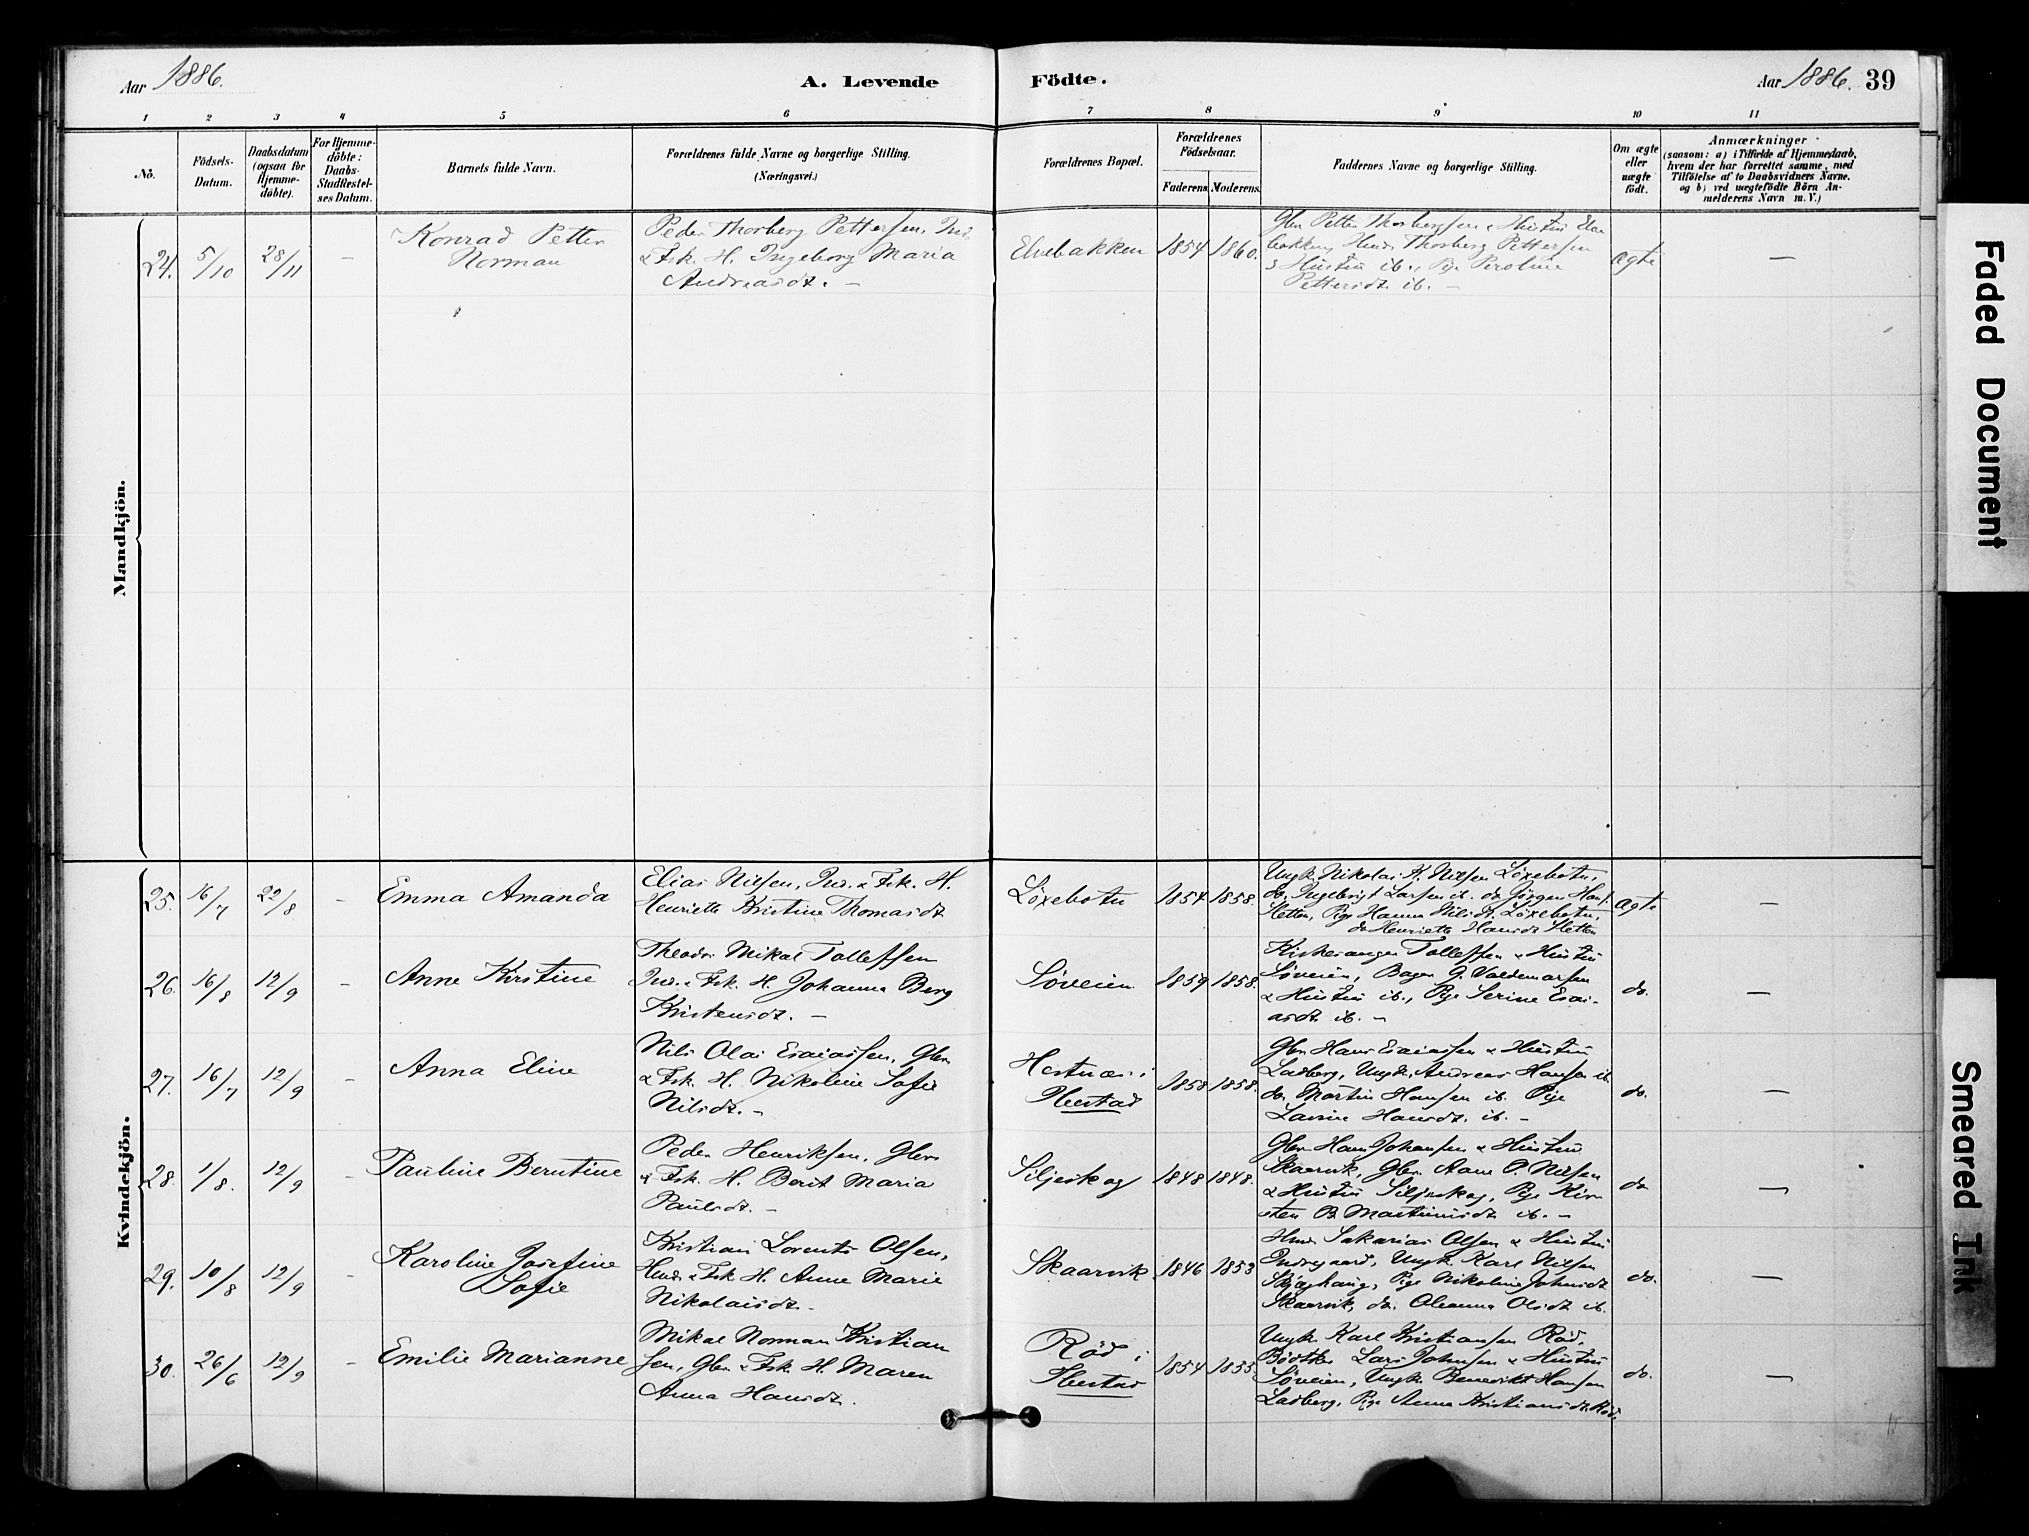 Aar 1886.
A. Levende
Födte.
Aar 1886. 39
1 2 3 4 5 6 7 8 9 10 11
No.
Födsels-
Datum.
Daabsdatum
(ogsaa for
Hjemme-
döbte).
For Hjemme-
döbte:
Daabs-
Stadfæstel-
ses Datum.
Barnets fulde Navn.
Forældrenes fulde Navne og borgerlige Stilling.
(Næringsvei.)
Forældrenes Bopæl.
Forældrenes
Födselsaar.
Faderens. Moderens.
Faddernes Navne og borgerlige Stilling.
Om ægte
eller
uægte
födt.
Anmærkninger
(saasom: a) i Tilfælde af Hjemmedaab,
hvem der har forrettet samme, med
Tilföielse af to Daabsvidners Navne,
og b) ved uægtefödte Börn An-
melderens Navn m. V.)
Mandkjön.
24. 5/10 28/11 –
Konrad Petter
Norman
Peder Thorberg Pettersen, Ind.
& Fsk. H. Ingeborg Maria
Andreasdt. –
Elvebakken 1854 1860.
Gbr Petter Thorbergsen & Hustru Elve
bakken, Huus. Thorberg Pettersen
& Hustru ib., Pige Peroline
Pettersdt. ib. –
Ægte –
Kvindekjön.
25. 16/7 22/8 –
Emma Amanda
Elias Nilsen, Ind. & Fsk. H.
Henriette Kristine Thomasdt
Löxebotn 1854 1858.
Ungk. Nikolai K. Nilsen Löxebotn,
do. Ingebrigt Larsen ib. do Jörgen Hans.
Hetten, Pige Hanna Nilsdt. Löxebotn,
do Henriette Hansdt Hetten
Ægte –
26. 16/8 12/9 –
Anne Kirstine
Theodor Mikal Tollefsen
Ind. & Fsk. H. Johanna Berg
Kristensdt. –
Söveien 1859 1858.
Kirkesanger Tollefsen & Hustru
Söveien, Bager G. Valdemarsen
& Hustru ib., Pige Serine Esai-
asdt. ib. –
do. –
27. 16/7 12/9 –
Anna Eline
Nils Olai Esaiassen, Gbr.
& Fsk. H. Nikoline Sofie
Nilsdt. –
Hestnæs i
Hestad
1858 1858.
Gbr Hans Esaiassen & Hustru
Ladberg, Ungk. Andreas Hansen ib.
do. Martin Hansen ib. Pige
Lavine Hansdt. ib. –
do. –
28. 1/8. 12/9 –
Pauline Berntine
Peder Henriksen, Gbr.
& Fsk. H. Berit Maria
Paulsdt. –
Siljeskog 1848 1848.
Gbr Hans Johansen & Hustru
Skaarvik, Gbr. Aane O. Nilsen
& Hustru Siljeskog, Pige Kir
sten B. Martinusdt. ib. –
do –
29. 10/8 12/9 –
Karoline Josefine
Sofie
Kristian Lorents Olsen,
Hmd. & Fsk. H. Anne Marie
Nikolaisdt. –
Skaarvik 1846 1853
Hmd Sakarias Olsen & Hustru
Indregaard, Ungk. Karl Nilsen
Sköghaug, Pige Nikoline Johnsdt
Skaarvik, do. Oleanna Olsdt ib.
do. –
30. 26/6 12/9 –
Emilie Marianne
Mikal Norman Kristian
sen, Gbr. & Fsk. H. Maren
Anna Hansdt.
Röd i
Hestad
1854 1855.
Ungk. Karl Kristiansen Röd,
Bödtker Lars Johnsen & Hustru
Söveien, Ungk. Benedikt Hansen
Ladberg, Pige Anna Kristiansdt. Röd.
do. –
Faded Document
Smeared Ink